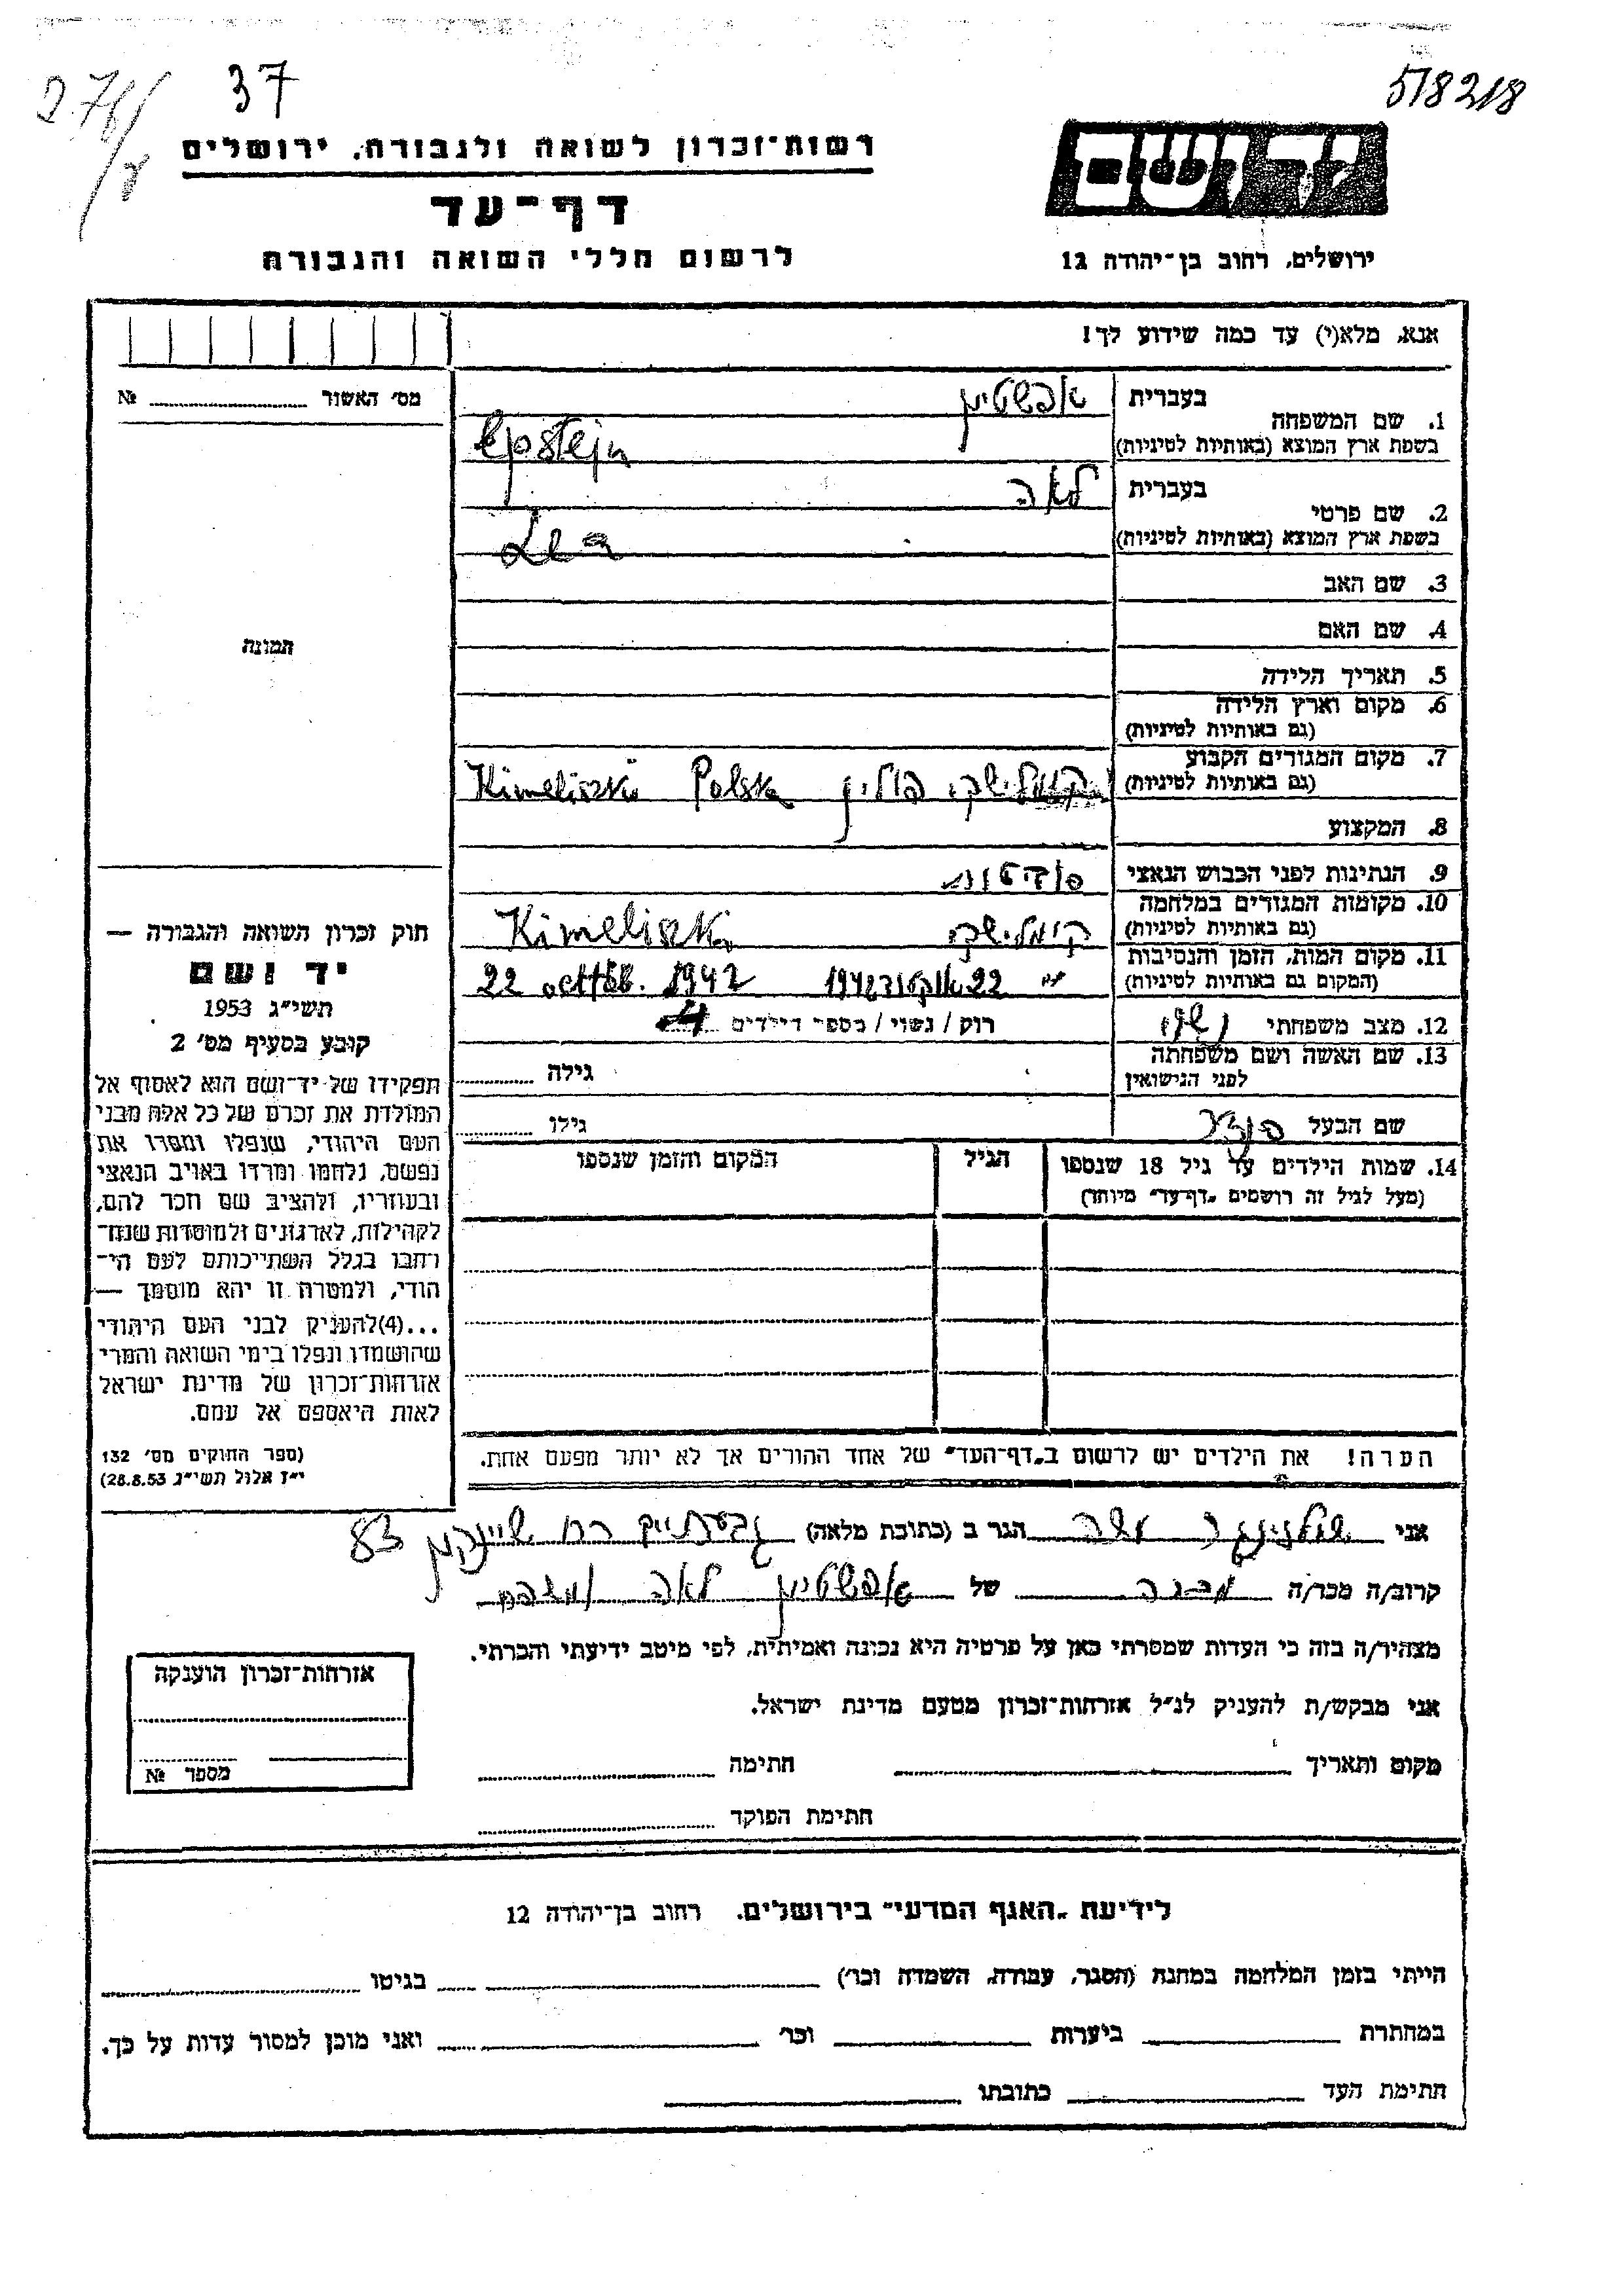 37
518218
רשות־זכרון לשואה ולגבורה, ירושלים
דף־עד
לרשום חללי השואה והגבורה
יד ושם
ירושלים, רחוב בן־יהודה 12
אנא, מלא(י) עד כמה שידוע לך!
מס׳ האשור № 
1. שם המשפחה
בעברית אפשטיין
בשפת ארץ המוצא (באותיות לטיניות) Epstejn
2. שם פרטי
בעברית לאה
בשפת ארץ המוצא (באותיות לטיניות) Lea
3. שם האב
4. שם האם
5. תאריך הלידה
6. מקום וארץ הלידה
(גם באותיות לטיניות)
7. מקום המגורים הקבוע
(גם באותיות לטיניות) קימלישקי פולין Kimeliszki Polska
8. המקצוע
9. הנתינות לפני הכבוש הנאצי
10. מקומות המגורים במלחמה
(גם באותיות לטיניות) קימלישקי Kimeliszki
11. מקום המות, הזמן והנסיבות
(המקום גם באותיות לטיניות) " 22 אוקטובר 1942 22 1942
12. מצב משפחתי נשוי רוק / נשוי / מספר הילדים 4
13. שם האשה ושם משפחתה
לפני הנישואין
גילה
שם הבעל
גילו
14. שמות הילדים עד גיל 18 שנספו
(מעל לגיל זה רושמים „דף־עד״ מיוחד)
הגיל
המקום והזמן שנספו
הערה! את הילדים יש לרשום ב„דף־העד״ של אחד ההורים אך לא יותר מפעם אחת.
תמונה
חוק זכרון השואה והגבורה —
יד ושם
תשי״ג 1953
קובע בסעיף מס׳ 2
תפקידו של יד־ושם הוא לאסוף אל
המולדת את זכרם של כל אלה מבני
העם היהודי, שנפלו ומסרו את
נפשם, נלחמו ומרדו באויב הנאצי
ובעוזריו, ולהציב שם וזכר להם,
לקהילות, לארגונים ולמוסדות שנח־
רבו בגלל השתייכותם לעם הי־
הודי, ולמטרה זו יהא מוסמך —
...(4)להעניק לבני העם היהודי
שהושמדו ונפלו בימי השואה והמרי
אזרחות־זכרון של מדינת ישראל
לאות היאספם אל עמם.
(ספר החוקים מס׳ 132
י״ז אלול תשי״ג 28.8.53)
אני הגר ב (כתובת מלאה) גבעתיים רח שיינקין 83
קרוב/ה מכר/ה מכרה של אפשטיין לאה
מצהיר/ה בזה כי העדות שמסרתי כאן על פרטיה היא נכונה ואמיתית, לפי מיטב ידיעתי והכרתי.
אני מבקש/ת להעניק לנ״ל אזרחות־זכרון מטעם מדינת ישראל.
מקום ותאריך חתימה
חתימת הפוקד
אזרחות־זכרון הוענקה
מספר №
לידיעת „האגף המדעי״ בירושלים, רחוב בן־יהודה 12
הייתי בזמן המלחמה במחנה (הסגר, עבודה, השמדה וכו׳) בגיטו
במחתרת ביערות וכו׳ ואני מוכן למסור עדות על כך.
חתימת העד כתובתו